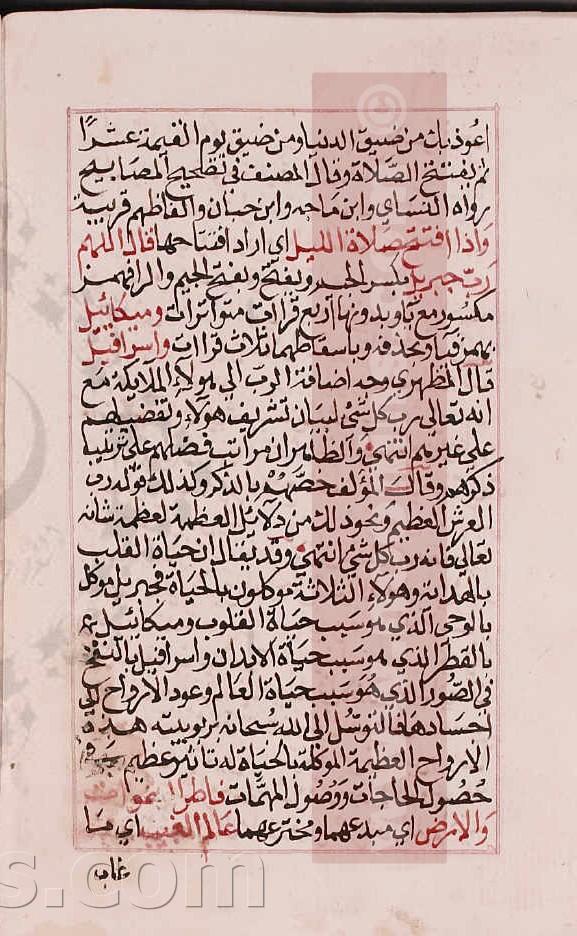 اعوذ بك من ضيق الدنيا ومن ضيق يوم القيمة عشرا
ثم يفتتح الصلاة وقال المصنف في تصحيح المصابيح
رواه النسائي وابن ماجه وابن حبان والفاظهم قريبة
واذا افتتح صلاة الليل اي اراد افتتاحها قال اللهم
رب جبريل بكسر الجيم وبفتح وبفتح الجيم والراء فهمز
مكسور مع يا وبدونها اربع قراات متواترات وميكائيل
بهمز فيا وبحذفه وباسقاطهما ثلاث قراات واسرافيل
قال المظهري وجه اضافة الرب الى هولاء الملايكة مع
انه تعالى رب كل شئ لبيان تشريف هولاء وتفضيلهم
على غيرهم انتهى والظاهر ان مراتب فضلهم على ترتيب
ذكرهم وقال المؤلف خصهم بالذكر وكذلك قوله رب
العرش العظيم ونحو ذلك من دلائل العظمة لعظمة شانه
تعالى فانه رب كل شئ انتهى وقد يقال ان حياة القلب
بالهداية وهولاء الثلاثة موكلون بالحياة فجبريل موكل
بالوحي الذي هو سبب حياة القلوب وميكائيل
بالقطر الذي هو سبب حياة الابدان واسرافيل بالنفخ
في الصور الذي هو سبب حياة العالم وعود الارواح الى
اجسادها فالتوسل الى الله سبحانه بربوبيته هذه
الارواح العظيمة الموكلة بالحياة له تاثير عظيم في
حصول الحاجات ووصول المهمات فاطر السموات
والارض اي مبدعهما ومخترعهما عالم الغيب اي ما
غاب
s.com